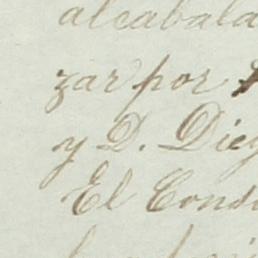 alcabala
zar por
y D. Dieg
El Cons